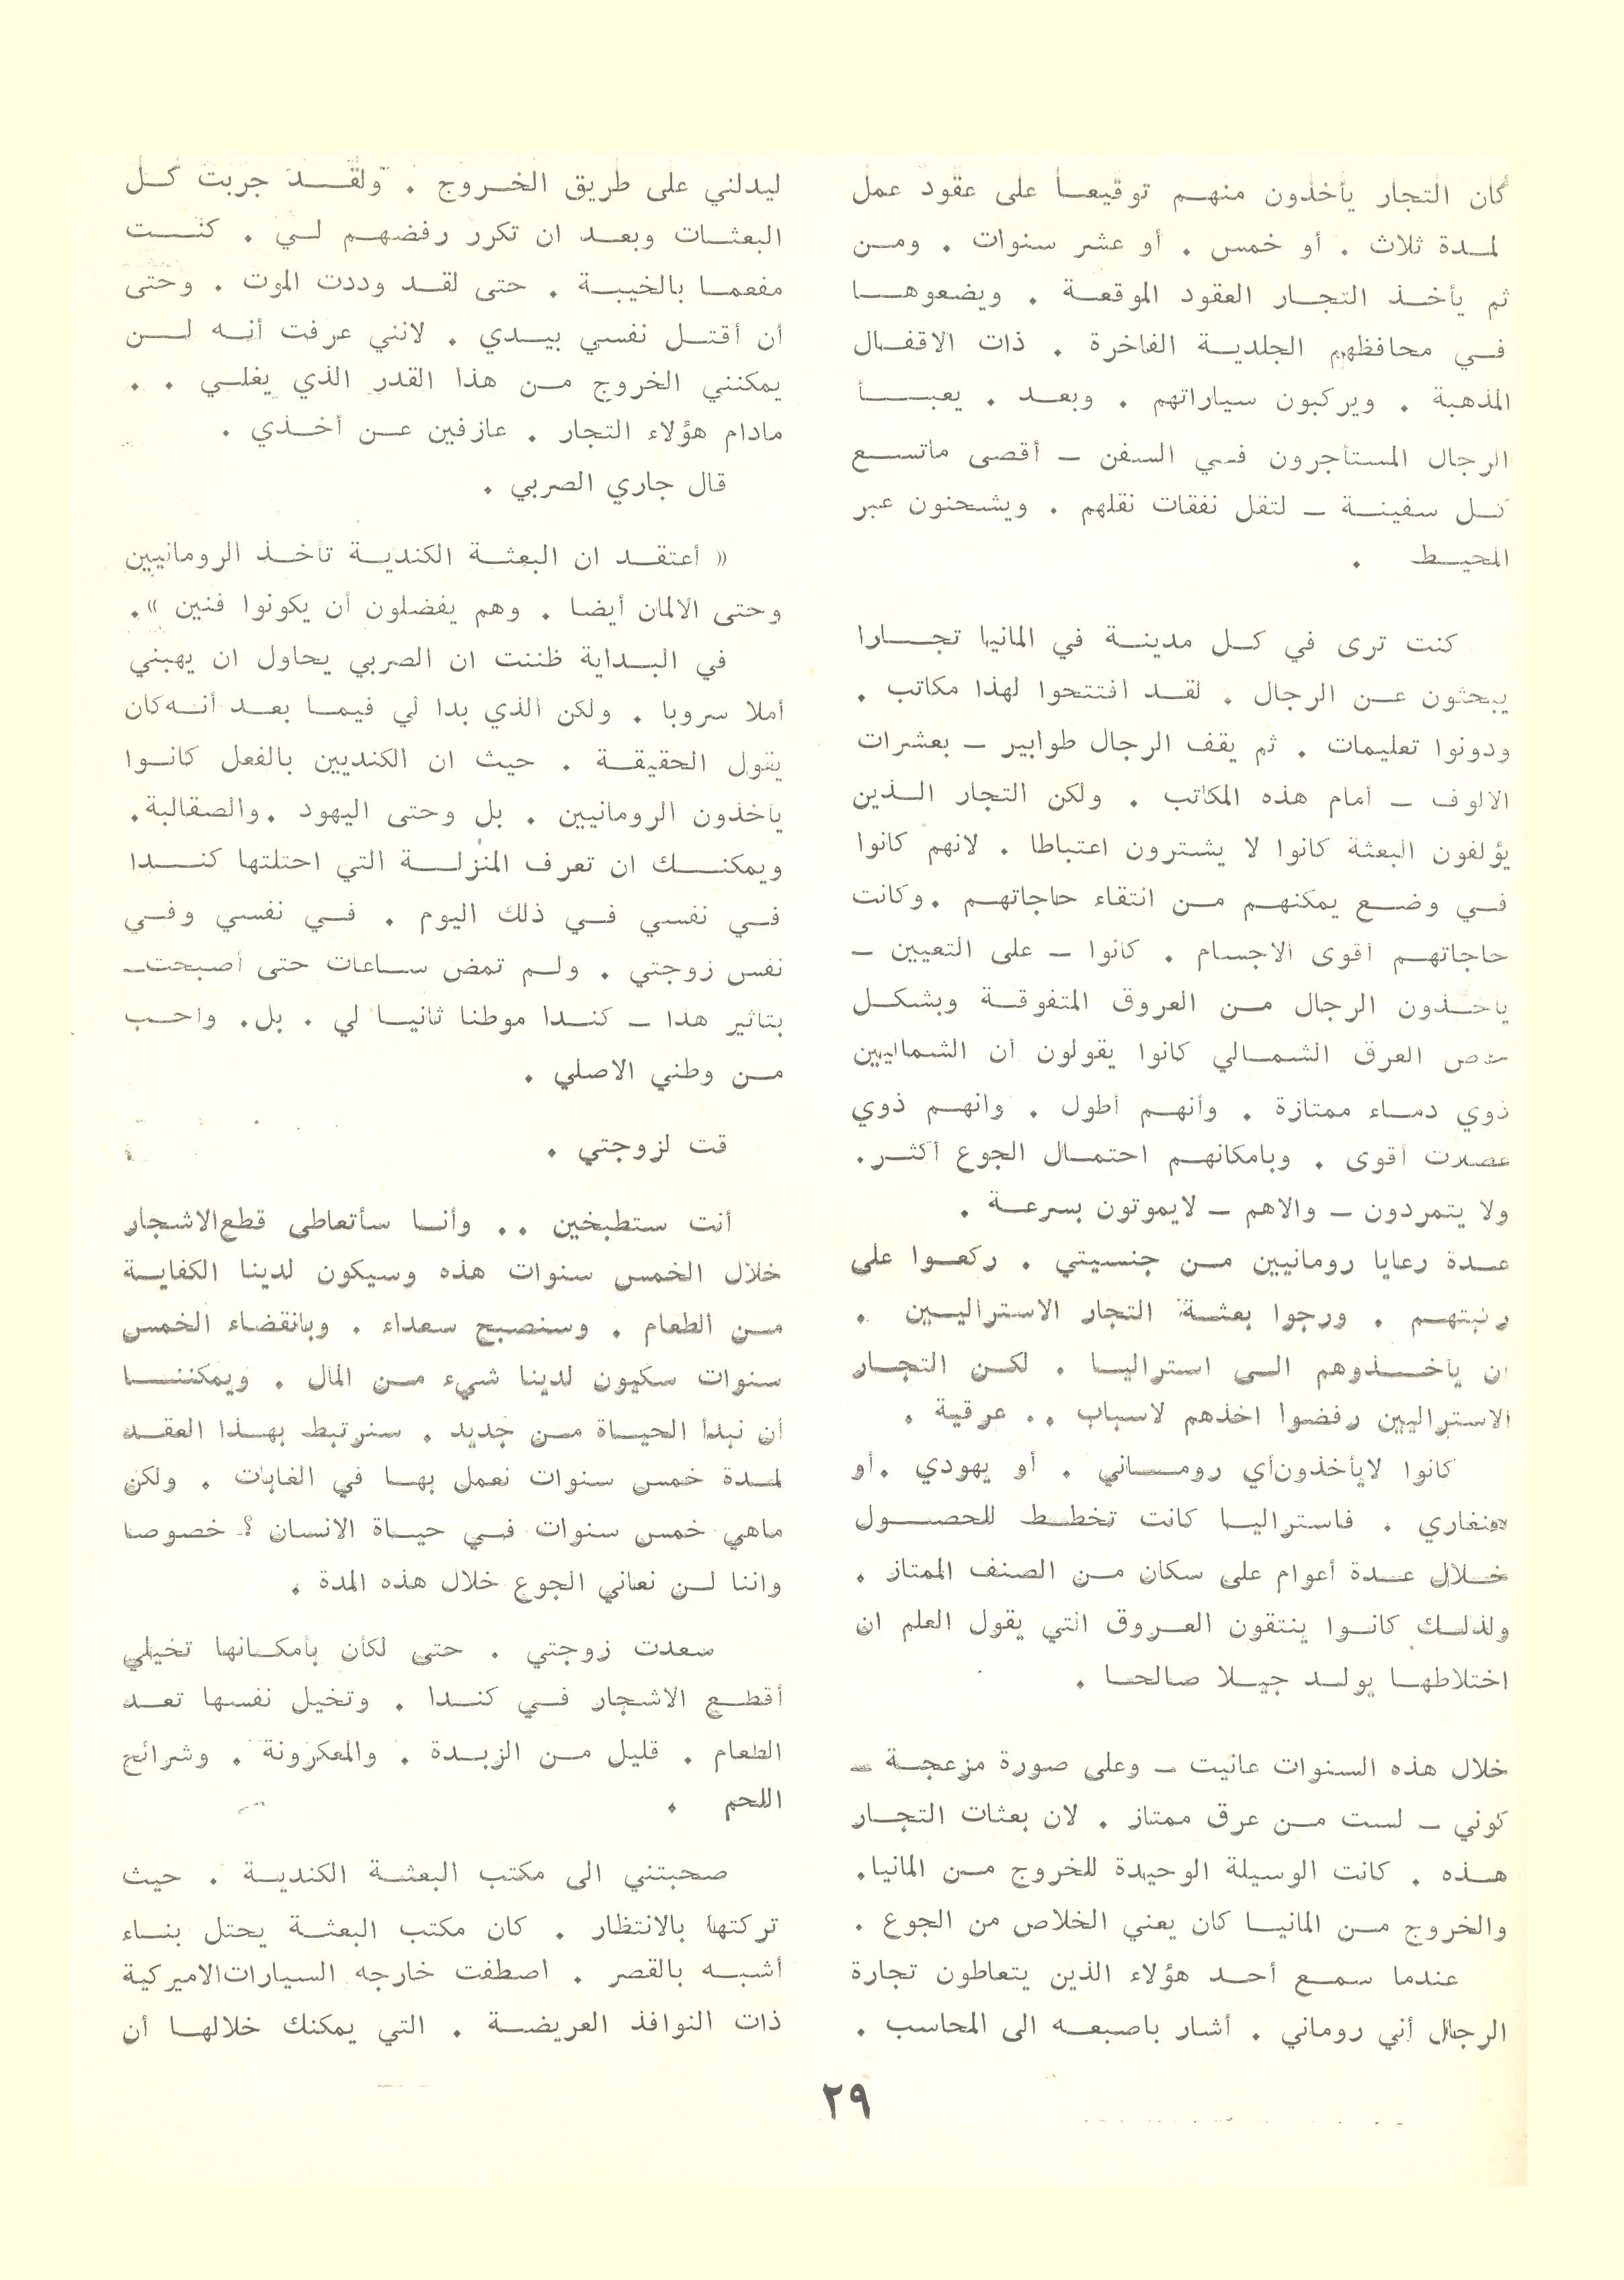 كان التجار يأخذون منهم توقيعا على عقود عمل
لمدة ثلاث . أو خمس . أو عشر سنوات . ومن
ثم يأخذ التجار العقود الموقعة . ويضعوها
في محافظهم الجلدية الفاخرة . ذات الاقفال
المذهبة . ويركبون سياراتهم . وبعد . يعبأ
الرجال المستأجرون في السفن ــ أقصى ماتسع
كل سفينة ــ لتقل نفقات نقلهم . ويشحنون عبر
المحيط .
كنت ترى في كل مدينة في المانيا تجارا
يبحثون عن الرجال . لقد افتتحوا لهذا مكاتب .
ودونوا تعليمات . ثم يقف الرجال طوابير ــ بعشرات
الالوف ــ أمام هذه المكاتب . ولكن التجار الذين
يؤلفون البعثة كانوا لا يشترون اعتباطا . لانهم كانوا
في وضع يمكنهم من انتقاء حاجاتهم . وكانت
حاجاتهم أقوى الاجسام . كانوا ــ على التعيين ــ
يأخذون الرجال من العروق المتفوقة وبشكل
خاص العرق الشمالي كانوا يقولون أن الشماليين
ذوي دماء ممتازة . وأنهم أطول . وانهم ذوي
عضلات أقوى . وبامكانهم احتمال الجوع أكثر .
ولا يتمردون ــ والاهم ــ لايموتون بسرعة .
عدة رعايا رومانيين من جنسيتي . ركعوا على
ركبتهم . ورجوا بعثة التجار الاستراليين .
ان يأخذوهم الى استراليا . لكن التجار
الاستراليين رفضوا اخذهم لاسباب .. عرقية .
كانوا لايأخذون أي روماني . أو يهودي . أو
هنغاري . فاستراليا كانت تخطط للحصول
خلال عدة أعوام على سكان من الصنف الممتاز .
ولذلك كانوا ينتقون العروق التي يقول العلم ان
اختلاطها يولد جيلا صالحا .
خلال هذه السنوات عانيت ــ وعلى صورة مزعجة ــ
كوني ــ لست من عرق ممتاز . لان بعثات التجار
هذه . كانت الوسيلة الوحيدة للخروج من المانيا .
والخروج من المانيا كان يعني الخلاص من الجوع .
عندما سمع أحد هؤلاء الذين يتعاطون تجارة
الرجال أني روماني . أشار باصبعه الى المحاسب .
ليدلني على طريق الخروج . ولقد جربت كل
البعثات وبعد ان تكرر رفضهم لي . كنت
مفعما بالخيبة . حتى لقد وددت الموت . وحتى
أن أقتل نفسي بيدي . لانني عرفت أنه لن
يمكنني الخروج من هذا القدر الذي يغلي . .
مادام هؤلاء التجار . عازفين عن أخذي .
قال جاري الصربي .
« أعتقد ان البعثة الكندية تأخذ الرومانيين
وحتى الالمان أيضا . وهم يفضلون أن يكونوا فنين » .
في البداية ظننت ان الصربي يحاول ان يهبني
أملا سروبا . ولكن الذي بدا لي فيما بعد أنه كان
يقول الحقيقة . حيث ان الكنديين بالفعل كانوا
يأخذون الرومانيين . بل وحتى اليهود . والصقالبة .
ويمكنك ان تعرف المنزلة التي احتلتها كندا
في نفسي في ذلك اليوم . في نفسي وفي
نفس زوجتي . ولم تمض ساعات حتى أصبحت ــ
بتأثير هذا ــ كندا موطنا ثانيا لي . بل . واحب
من وطني الاصلي .
قت لزوجتي .
أنت ستطبخين .. وأنا سأتعاطى قطع الاشجار
خلال الخمس سنوات هذه وسيكون لدينا الكفاية
من الطعام . وسنصبح سعداء . وبانقضاء الخمس
سنوات سكيون لدينا شيء من المال . ويمكننا
أن نبدأ الحياة من جديد . سنرتبط بهذا العقد
لمدة خمس سنوات نعمل بها في الغابات . ولكن
ماهي خمس سنوات في حياة الانسان ؟ خصوصا
واننا لن نعاني الجوع خلال هذه المدة .
سعدت زوجتي . حتى لكأن بأمكانها تخيلي
أقطع الاشجار في كندا . وتخيل نفسها تعد
الطعام . قليل من الزبدة . والمعكرونة . وشرائح
اللحم .
صحبتني الى مكتب البعثة الكندية . حيث
تركتها بالانتظار . كان مكتب البعثة يحتل بناء
أشبه بالقصر . اصطفت خارجه السيارات الاميركية
ذات النوافذ العريضة . التي يمكنك خلالها أن
٢٩